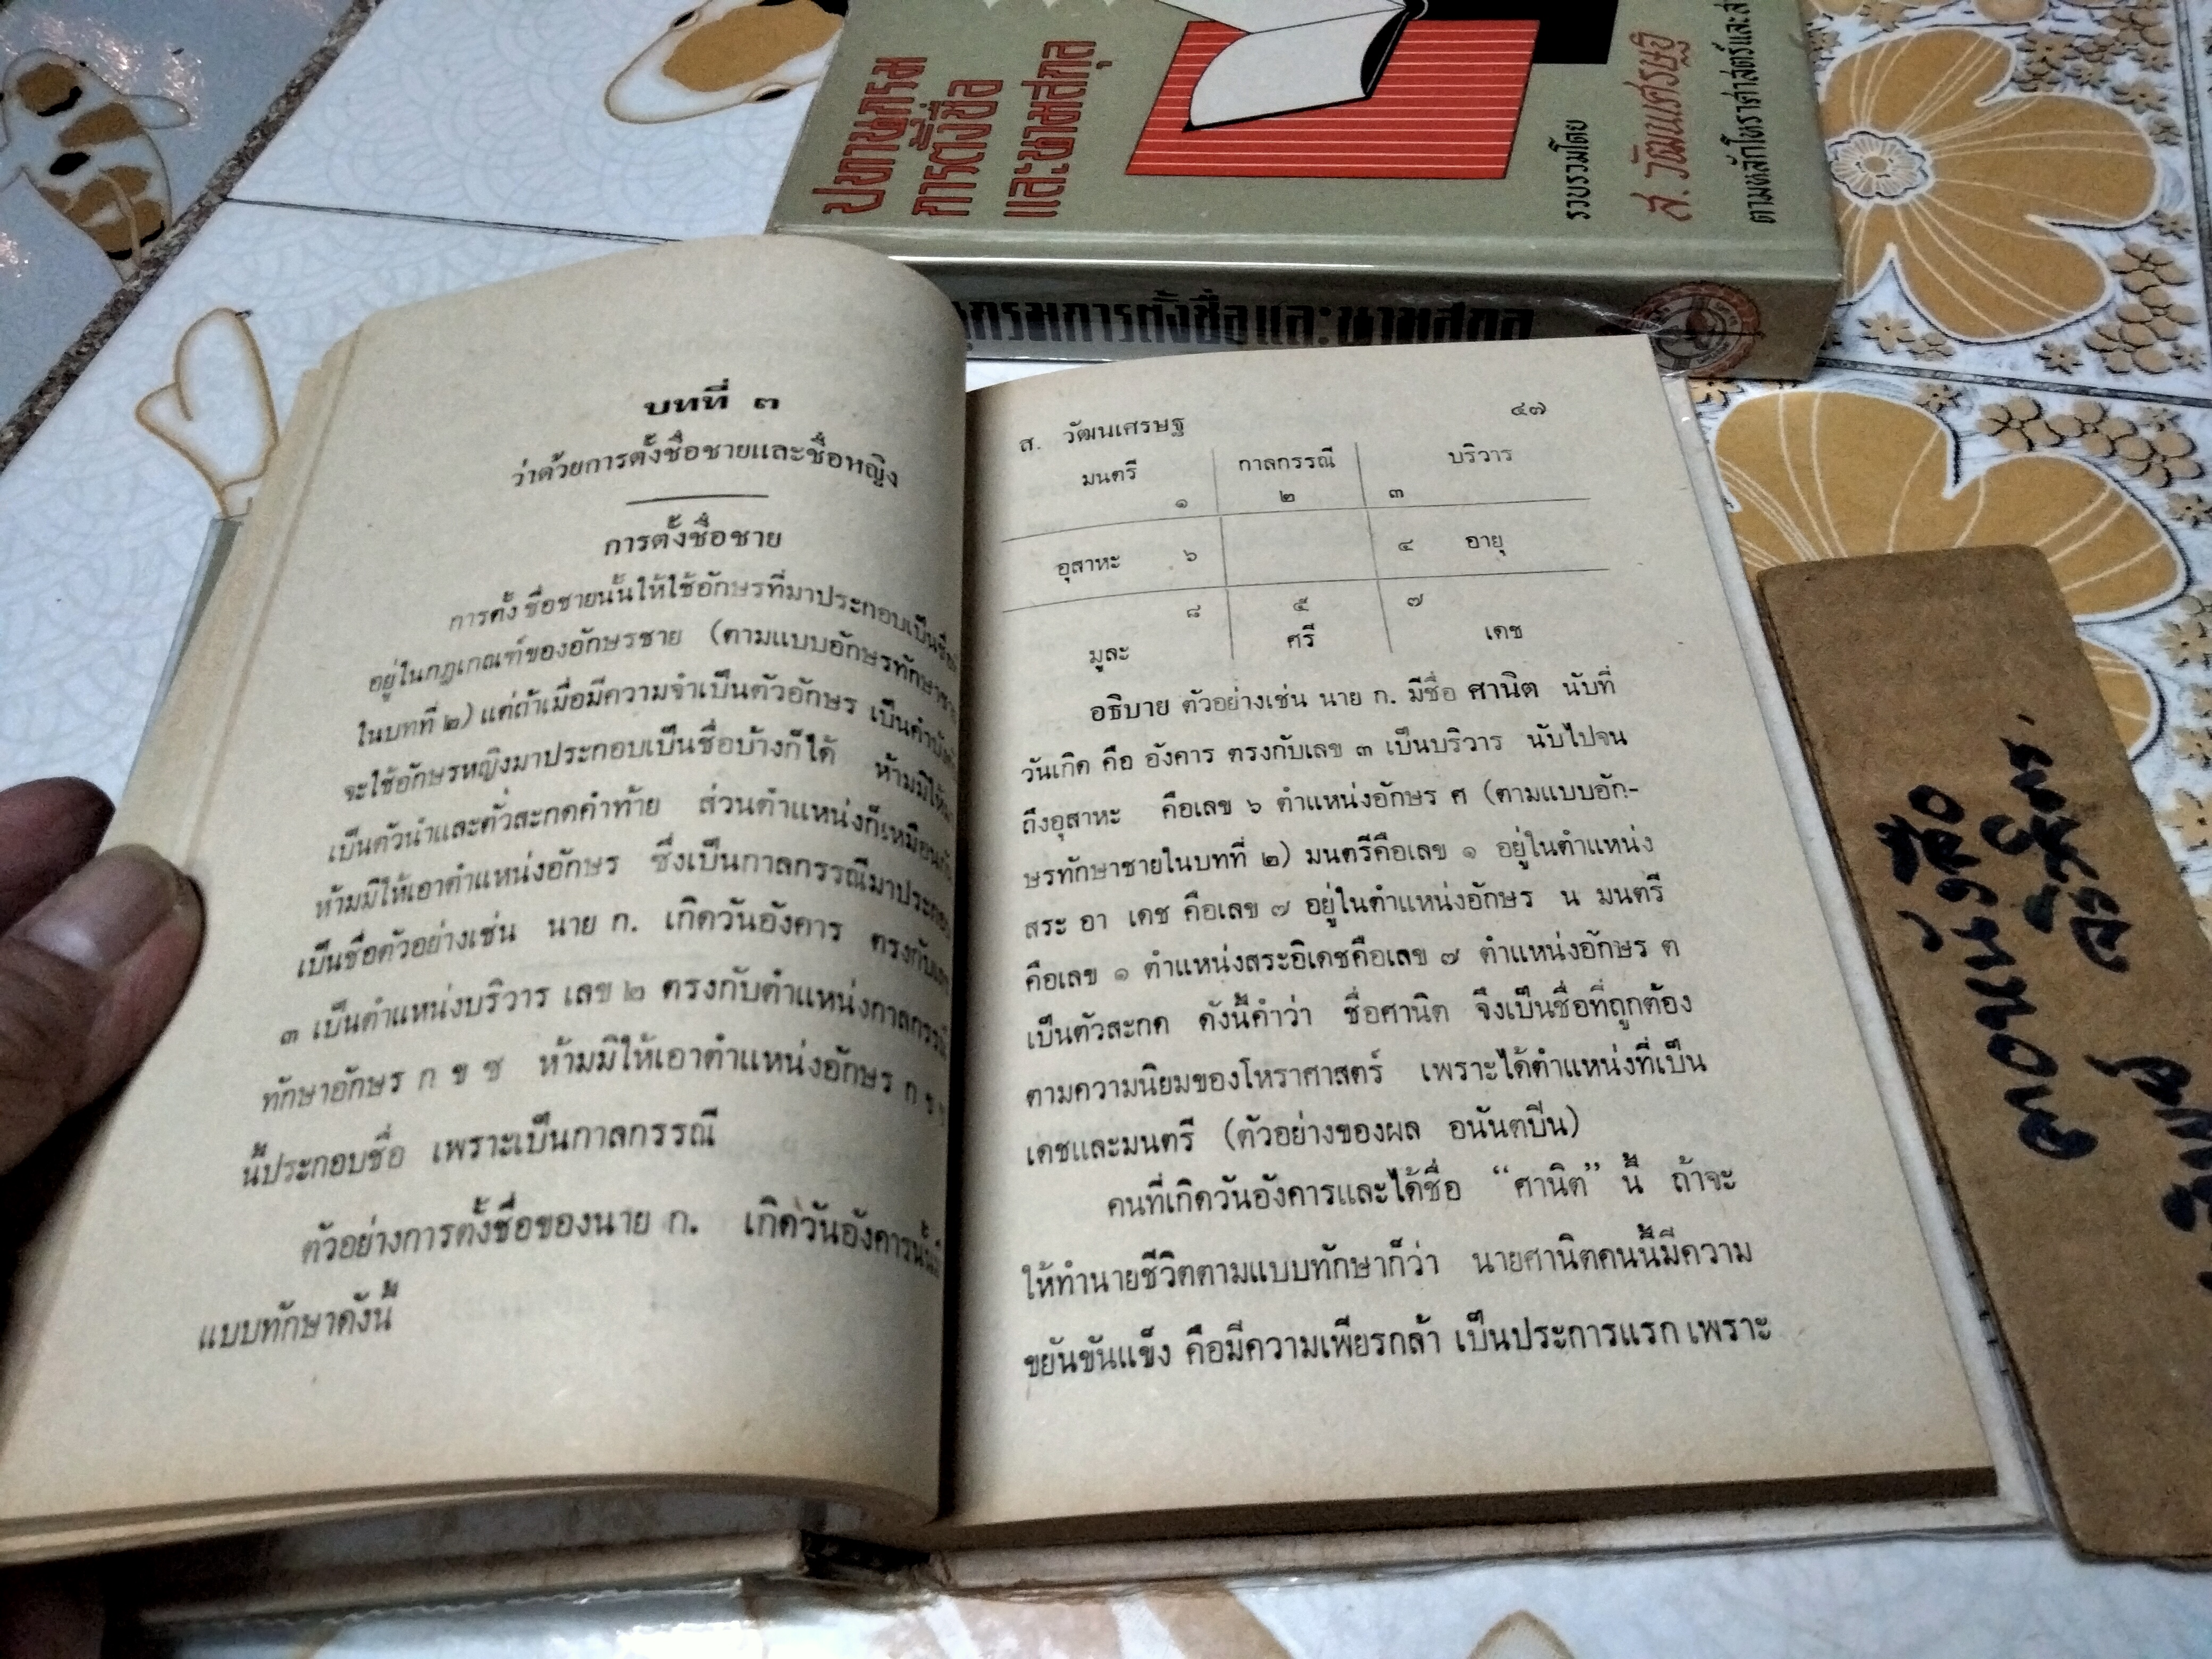 ปทานุกรม
การตั้งชื่อ
และนามสกุล
รวบรวมโดย
ส. วัฒนเศรษฐ
ตามหลักโหราศาสตร์และ
กรมการตั้งชื่อและนามสกุล
บทที่ ๓
ว่าด้วยการตั้งชื่อชายและชื่อหญิง
การตั้งชื่อชาย
การตั้งชื่อชายนั้นให้ใช้อักษรที่มาประกอบเป็นชื่อ
อยู่ในกฎเกณฑ์ของอักษรชาย (ตามแบบอักษรทักษาชาย
ในบทที่ ๒) แต่ถ้าเมื่อมีความจำเป็นตัวอักษร เป็นคำบังคับ
จะใช้อักษรหญิงมาประกอบเป็นชื่อบ้างก็ได้ ห้ามมิให้
เป็นตัวนำและตัวสะกดคำท้าย ส่วนตำแหน่งก็เหมือนกัน
ห้ามมิให้เอาตำแหน่งอักษร ซึ่งเป็นกาลกรรณีมาประกอบ
เป็นชื่อตัวอย่างเช่น นาย ก. เกิดวันอังคาร ตรงกับเลข
๓ เป็นตำแหน่งบริวาร เลข ๒ ตรงกับตำแหน่งกาลกรรณี
ทักษาอักษร ก ข ช ห้ามมิให้เอาตำแหน่งอักษร ก ข
นี้ประกอบชื่อ เพราะเป็นกาลกรรณี
ตัวอย่างการตั้งชื่อของนาย ก. เกิดวันอังคาร
แบบทักษาดังนี้
ส. วัฒนเศรษฐ ๔๗
มนตรี กาลกรรณี บริวาร
๑ ๒ ๓
อุสาหะ ๖ ๔ อายุ
๘ ๕ ๗
มูละ ศรี เดช
อธิบาย ตัวอย่างเช่น นาย ก. มีชื่อ ศานิต นับที่
วันเกิด คือ อังคาร ตรงกับเลข ๓ เป็นบริวาร นับไปจน
ถึงอุสาหะ คือเลข ๖ ตำแหน่งอักษร ศ (ตามแบบอัก-
ษรทักษาชายในบทที่ ๒) มนตรีคือเลข ๑ อยู่ในตำแหน่ง
สระ อา เดช คือเลข ๗ อยู่ในตำแหน่งอักษร น มนตรี
คือเลข ๑ ตำแหน่งสระอิเดชคือเลข ๗ ตำแหน่งอักษร ต
เป็นตัวสะกด ดังนี้คำว่า ชื่อศานิต จึงเป็นชื่อที่ถูกต้อง
ตามความนิยมของโหราศาสตร์ เพราะได้ตำแหน่งที่เป็น
เดชและมนตรี (ตัวอย่างของผล อนันตบีน)
คนที่เกิดวันอังคารและได้ชื่อ “ศานิต” นี้ ถ้าจะ
ให้ทำนายชีวิตตามแบบทักษาก็ว่า นายศานิตคนนี้มีความ
ขยันขันแข็ง คือมีความเพียรกล้า เป็นประการแรก เพราะ